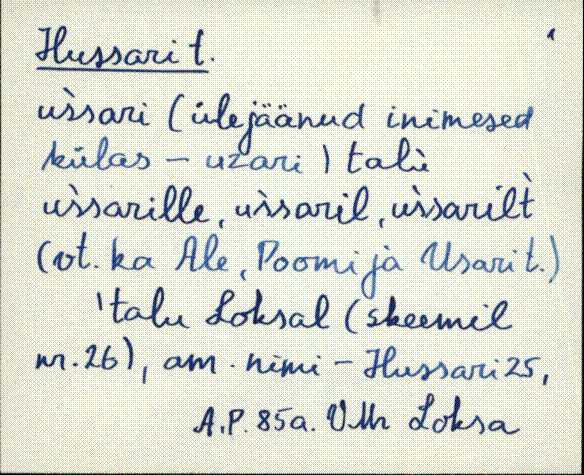 Hussari t.
us̀sari (ülejäänud inimesed
külas – uzari) talù
us̀sarille, us̀saril, us̀sarilt̀
(vt. ka Ale, Poomi ja Usari t.)
'talu Loksal (skeemil
nr. 26), am. nimi – Hussari 25,
A.P. 85a. VMr Loksa